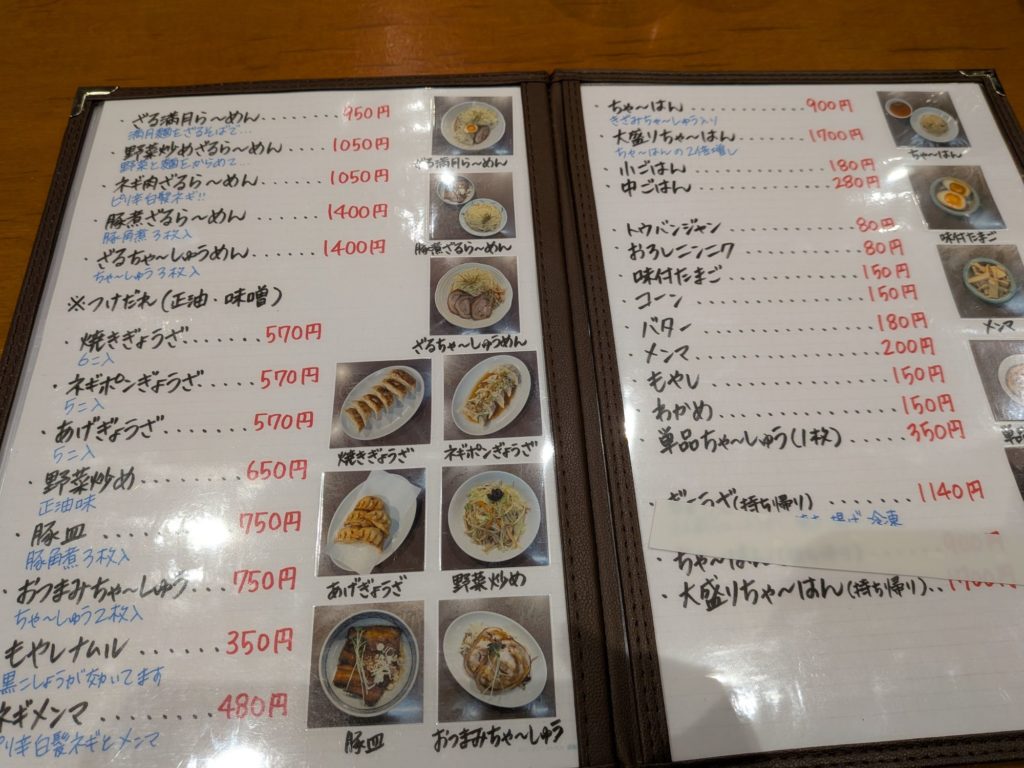 ・ざる満月ら～めん ........ 950円
満月麺をざるそばで…
・野菜炒めざるら～めん ..... 1050円
野菜と麺をからめて…
・ネギ肉ざるら～めん ....... 1050円
ピリ辛白髪ネギ!!
・豚煮ざるら～めん ....... 1400円
豚角煮3枚入
・ざるちゃ～しゅうめん ..... 1400円
ちゃ～しゅう3枚入
※つけだれ(正油・味噌)
・焼きぎょうざ ....... 570円
6ニ入
・ネギポンぎょうざ ..... 570円
5ニ入
・あげぎょうざ ....... 570円
5ニ入
・野菜炒め ........ 650円
正油味
・豚皿 ........... 750円
豚角煮3枚入
・おつまみちゃ～しゅう ... 750円
ちゃ～しゅう2枚入
もやしナムル ....... 350円
黒こしょうが効いてます
ネギメンマ ....... 480円
ピリ辛白髪ネギとメンマ
ざる満月ら～めん
豚煮ざるら～めん
ざるちゃ～しゅうめん
焼きぎょうざ
ネギポンぎょうざ
あげぎょうざ
野菜炒め
豚皿
おつまみちゃ～しゅう
・ちゃ～はん ........... 900円
きざみちゃ～しゅう入り
・大盛りちゃ～はん ....... 1700円
ちゃ～はんの2倍増し
・小ごはん ........... 180円
・中ごはん ........... 280円
・トウバンジャン ......... 80円
・おろしニンニク ......... 80円
・味付たまご .......... 150円
・コーン ............ 150円
・バター ............ 180円
・メンマ ............ 200円
・もやし ............ 150円
・わかめ ............ 150円
・単品ちゃ～しゅう(1枚) ... 350円
(持ち帰り) ....... 1140円
揚げ 冷凍
・ちゃ～はん
・大盛りちゃ～はん(持ち帰り)..
ちゃ～はん
味付たまご
メンマ
単品